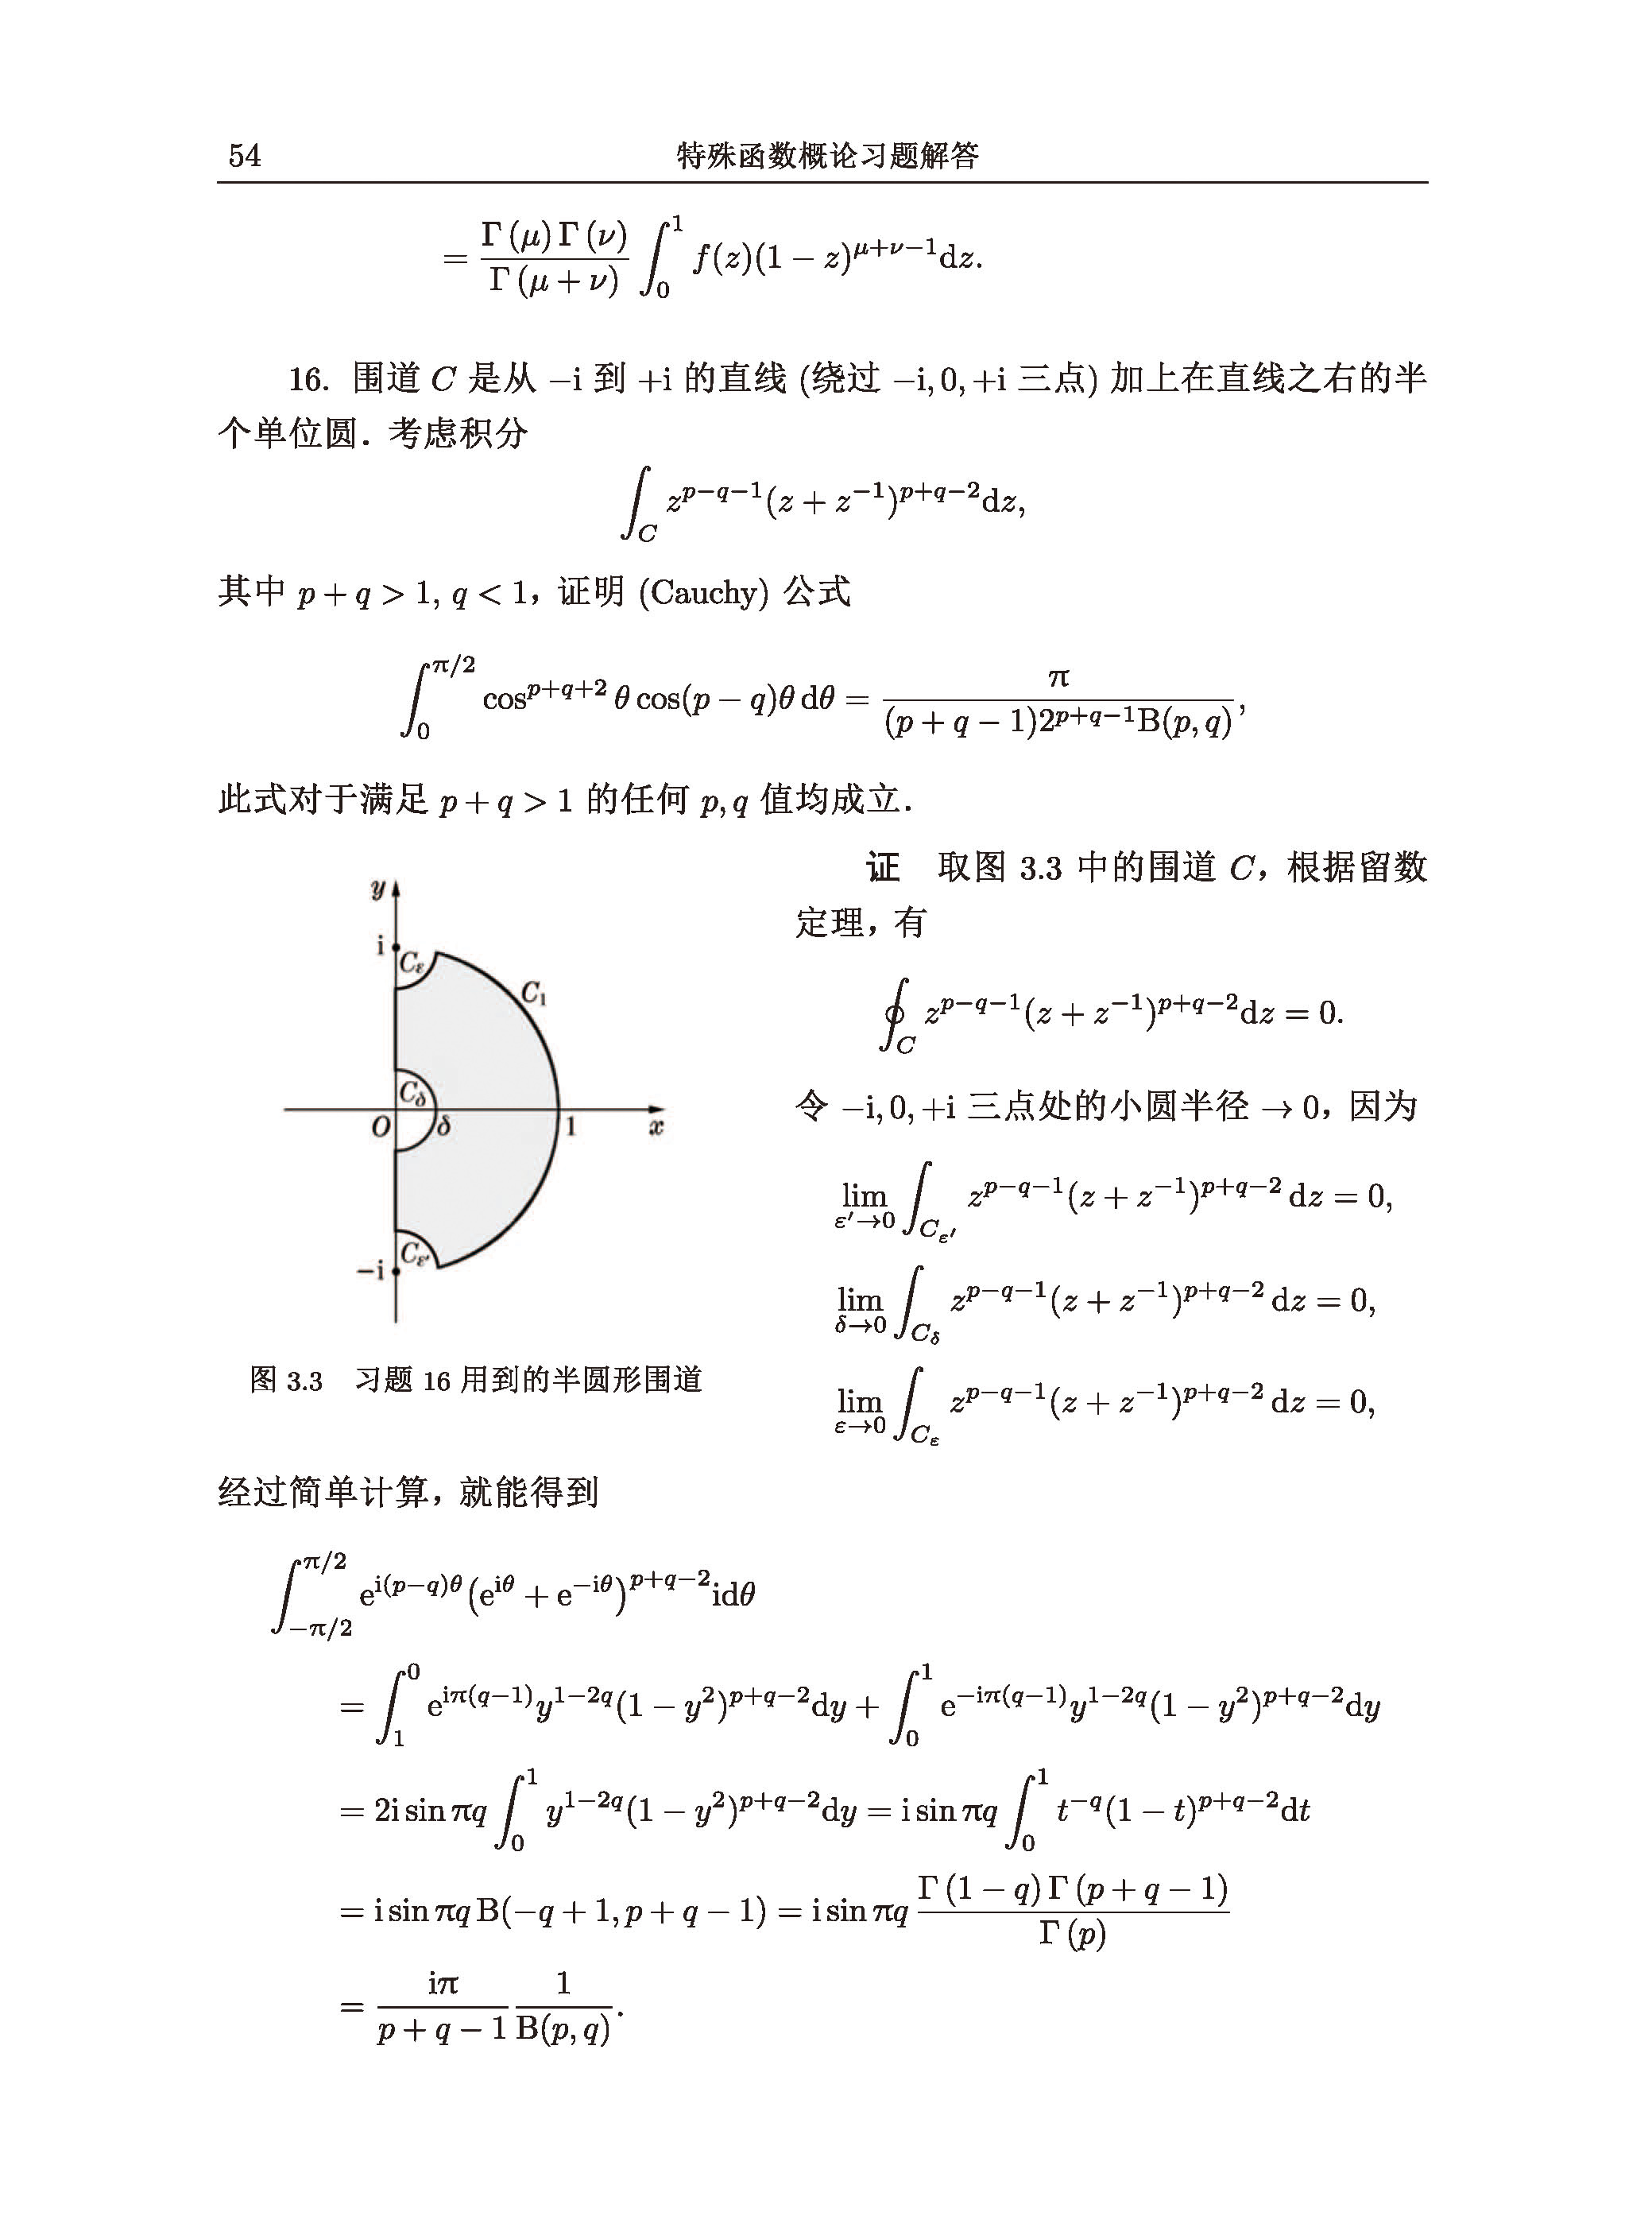 54 特殊函数概论习题解答
$= \frac{\Gamma(\mu)\Gamma(\nu)}{\Gamma(\mu+\nu)} \int_0^1 f(z)(1-z)^{\mu+\nu-1}\mathrm{d}z.$
16. 围道 $C$ 是从 $-\mathrm{i}$ 到 $+\mathrm{i}$ 的直线 (绕过 $-\mathrm{i}, 0, +\mathrm{i}$ 三点) 加上在直线之右的半
个单位圆. 考虑积分
$\int_C z^{p-q-1}(z+z^{-1})^{p+q-2}\mathrm{d}z,$
其中 $p+q>1, q<1$, 证明 (Cauchy) 公式
$\int_0^{\pi/2} \cos^{p+q+2}\theta \cos(p-q)\theta\,\mathrm{d}\theta = \frac{\pi}{(p+q-1)2^{p+q-1}\mathrm{B}(p,q)},$
此式对于满足 $p+q>1$ 的任何 $p,q$ 值均成立.
证 取图 3.3 中的围道 $C$, 根据留数
定理, 有
$\oint_C z^{p-q-1}(z+z^{-1})^{p+q-2}\mathrm{d}z = 0.$
令 $-\mathrm{i}, 0, +\mathrm{i}$ 三点处的小圆半径 $\to 0$, 因为
$\lim_{\varepsilon'\to 0} \int_{C_{\varepsilon'}} z^{p-q-1}(z+z^{-1})^{p+q-2}\,\mathrm{d}z = 0,$
$\lim_{\delta\to 0} \int_{C_\delta} z^{p-q-1}(z+z^{-1})^{p+q-2}\,\mathrm{d}z = 0,$
$\lim_{\varepsilon\to 0} \int_{C_\varepsilon} z^{p-q-1}(z+z^{-1})^{p+q-2}\,\mathrm{d}z = 0,$
$y$
$\mathrm{i}$
$C_\varepsilon$
$C_1$
$C_\delta$
$O$ $\delta$ $1$ $x$
$C_{\varepsilon'}$
$-\mathrm{i}$
图 3.3 习题 16 用到的半圆形围道
经过简单计算, 就能得到
$\int_{-\pi/2}^{\pi/2} \mathrm{e}^{\mathrm{i}(p-q)\theta}(\mathrm{e}^{\mathrm{i}\theta}+\mathrm{e}^{-\mathrm{i}\theta})^{p+q-2}\mathrm{i}\mathrm{d}\theta$
$= \int_1^0 \mathrm{e}^{\mathrm{i}\pi(q-1)}y^{1-2q}(1-y^2)^{p+q-2}\mathrm{d}y + \int_0^1 \mathrm{e}^{-\mathrm{i}\pi(q-1)}y^{1-2q}(1-y^2)^{p+q-2}\mathrm{d}y$
$= 2\mathrm{i}\sin\pi q \int_0^1 y^{1-2q}(1-y^2)^{p+q-2}\mathrm{d}y = \mathrm{i}\sin\pi q \int_0^1 t^{-q}(1-t)^{p+q-2}\mathrm{d}t$
$= \mathrm{i}\sin\pi q\,\mathrm{B}(-q+1, p+q-1) = \mathrm{i}\sin\pi q \frac{\Gamma(1-q)\Gamma(p+q-1)}{\Gamma(p)}$
$= \frac{\mathrm{i}\pi}{p+q-1} \frac{1}{\mathrm{B}(p,q)}.$